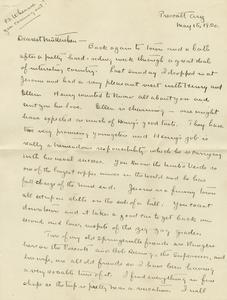 Prescott Ary
May 16, 1920.
Dearest Mütterchen
Back again to town and a bath
after a pretty hard riding week through a great deal
of interesting country. Last Sunday I dropped in at
Jerome and had a very pleasant visit with Henry and
Ellen. Henry wanted to know all about you and
sent you his love. Ellen is charming — one might
expected as much of Henry's good taste. They have
two very promising youngsters and Henry's job is
really a tremendous responsibility which he is carrying
with his usual success. You know the United Verde is
one of the largest copper mines in the world and he has
full charge of the mine end. Jerome is a funny town
all set up on stilts on the side of a hill. You coast
down town and it takes a good car to get back in
second and lower parts of the zig zag grades.
Two of my old Springerville friends are Rangers
here on the Prescott and Bob Benny, the Supervisor, and
his wife, are all old friends so I have been having
a very sociable time of it. I find everything in fine
shape so the trip is pretty near a vacation. I will